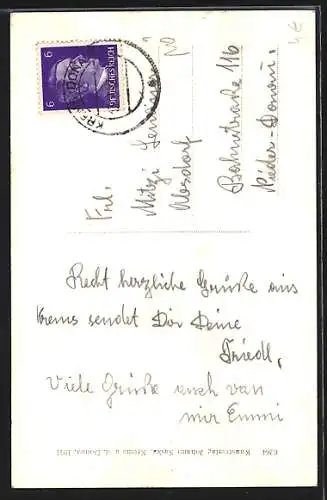 6
DEUTSCHES REICH
6
KREMS
Frl.
Mitzi
Absdorf
Bahnstraße 116
Nieder-Donau.
Recht herzliche Grüße aus
Krems sendet Dir Deine
Friedl,
Viele Grüße auch von
mir Emmi
Kunstverlag Johanna Krems a. d. Donau, 1941